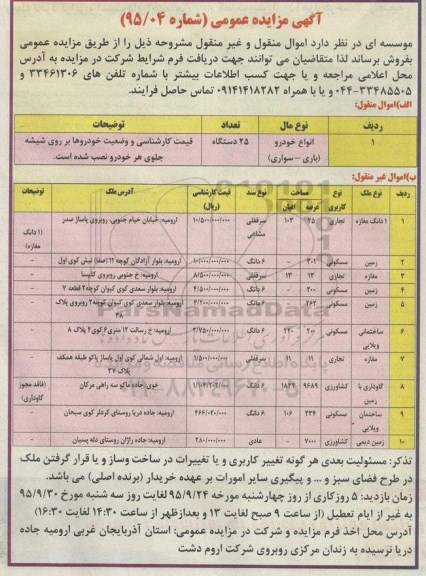 آگهی مزایده عمومی (شماره ۹۵/۰۴)
موسسه ای در نظر دارد اموال منقول و غیر منقول مشروحه ذیل را از طریق مزایده عمومی
بفروش برساند لذا متقاضیان می توانند جهت دریافت فرم شرایط شرکت در مزایده به آدرس
محل اعلامی مراجعه و یا جهت کسب اطلاعات بیشتر با شماره تلفن های ۳۳۴۶۱۳۰۶ و
۰۴۴-۳۳۴۸۵۵۰۵ و یا با همراه ۰۹۱۴۱۴۱۸۲۸۲ تماس حاصل فرایند.
الف)اموال منقول:
ردیف نوع مال تعداد توضیحات
۱ انواع خودرو (باری - سواری) ۲۵ دستگاه قیمت کارشناسی و وضعیت خودروها بر روی شیشه جلوی هر خودرو نصب شده است.
ب)اموال غیر منقول:
ردیف نوع ملک نوع کاربری مساحت عرصه اعیان نوع سند قیمت کارشناسی (ریال) آدرس ملک توضیحات
۱ ۱ دانگ مغازه تجاری ۲۵ ۱۰۳ سرقفلی مشاعی ۱۰/۵۰۰/۰۰۰/۰۰۰ ارومیه: خیابان خیام جنوبی، روبروی پاساژ صدر (۱ دانگ مغازه)
۲ زمین مسکونی ۳۰۱ - ۶ دانگ ۱۰/۰۰۰/۰۰۰/۰۰۰ ارومیه: بلوار آزادگان کوچه ۱۱ (صفا) نبش کوی اول -
۳ مغازه تجاری ۱۳ ۱۳ سرقفلی ۸/۵۰۰/۰۰۰/۰۰۰ ارومیه: خ جنوبی روبروی کلیسا -
۴ زمین مسکونی ۲۰۰ - ۶ دانگ ۴/۵۰۰/۰۰۰/۰۰۰ ارومیه: بلوار سعدی کوی کیوان کوچه۲ قطعه ۷ -
۵ زمین مسکونی ۲۶۲ - ۶ دانگ ۴/۲۰۰/۰۰۰/۰۰۰ ارومیه: بلوار سعدی کوی کیوان کوچه۲ روبروی پلاک ۳۸ -
۶ ساختمانی ویلایی مسکونی ۲۰۰ ۲۴۰ ۶ دانگ ۲/۷۵۰/۰۰۰/۰۰۰ ارومیه: خ رسالت ۱۲ متری۶ کوی۲ پلاک ۸ -
۷ مغازه تجاری ۱۱ ۱۱ سرقفلی ۱/۵۰۰/۰۰۰/۰۰۰ ارومیه: اول شمالی کوی اول پاساژ پاکو طبقه همکف پلاک ۲۷ -
۸ گاوداری با کشاورزی ۹۶۸۹ ۱۸۳۴ ۶ دانگ ۱/۱۰۴/۲۰۲/۰۰۰ خوی: جاده ماکو سه راهی مرکان (فاقد مجوز گاوداری)
۹ ساختمان ویلایی مسکونی ۲۳۴ ۱۰۶ ۶ دانگ ۴۶۶/۰۲۰/۰۰۰ ارومیه: جاده دریا روستای کردلر کوی سبحان -
۱۰ زمین دیمی کشاورزی ۷۰۰۰ - عادی ۲۸۰/۰۰۰/۰۰۰ ارومیه: جاده راژان روستای دله پسیان -
تذکر: مسئولیت بعدی هر گونه تغییر کاربری و یا تغییرات در ساخت وساز و یا قرار گرفتن ملک
در طرح فضای سبز و ... و پیگیری سایر امورات بر عهده خریدار (برنده اصلی) می باشد.
زمان بازدید: ۵ روزکاری از روز چهارشنبه مورخه ۹۵/۹/۲۴ لغایت روز سه شنبه مورخ ۹۵/۹/۳۰
به غیر از ایام تعطیل (از ساعت ۹ صبح لغایت ۱۳ و بعدازظهر از ساعت ۱۴:۳۰ لغایت ۱۶:۳۰)
آدرس محل اخذ فرم مزایده و شرکت در مزایده عمومی: استان آذربایجان غربی ارومیه جاده
دریا نرسیده به زندان مرکزی روبروی شرکت اروم دشت
ParsNamadData